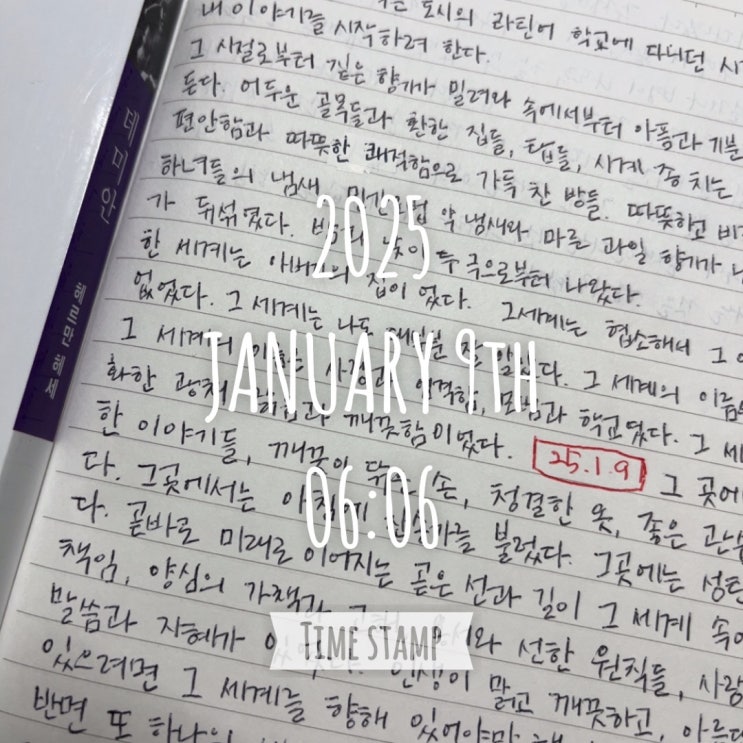 내 이야기를 시작하려 한다. 도시의 라틴어 학교에 다니던 시
그 시절로부터 짙은 향기가 밀려와 속에서부터 아픔과 기분
든다. 어두운 골목들과 환한 집들, 탑들, 시계 종 치는
편안함과 따뜻한 쾌적함으로 가득 찬 방들. 따뜻하고 비
하녀들의 냄새 약 냄새와 마른 과일 향기가
가 뒤섞였다. 두 극으로부터 나왔다.
한 세계는 집이었다. 그 세계는 협소해서 그
없었다. 그 세계는 잘 그 세계의 이름
그 세계의 엄격함, 모범과 학교였다. 그 세
화한 광채 깨끗함이었다. 25.1.9 그 곳에
한 이야기들, 깨끗이 닦 손, 청결한 옷, 좋은 관습
다. 그곳에서는 아침에 불렀다. 그곳에는 성탄
다. 곧바로 미래로 이어지는 곧은 선과 길이 그 세계 속에
책임, 양심의 가책과 선한 원칙들, 사랑
말씀과 지혜가 인생이 맑고 깨끗하고, 아름다
있으려면 그 세계를 향해 있어야만
반면 또 하나의
데미안
헤르만 헤세
2025
JANUARY 9TH
06:06
TIME STAMP